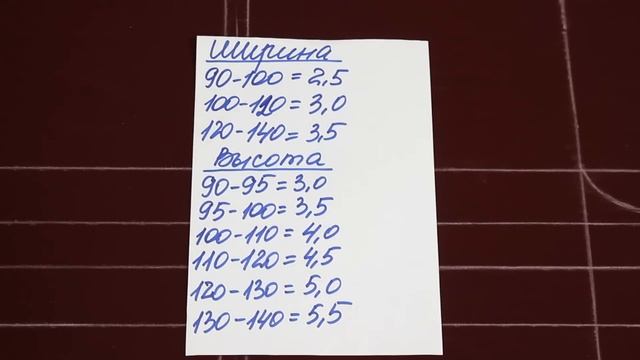 Ширина
90-100=2,5
100-120=3,0
120-140=3,5
Высота
90-95=3,0
95-100=3,5
100-110=4,0
110-120=4,5
120-130=5,0
130-140=5,5